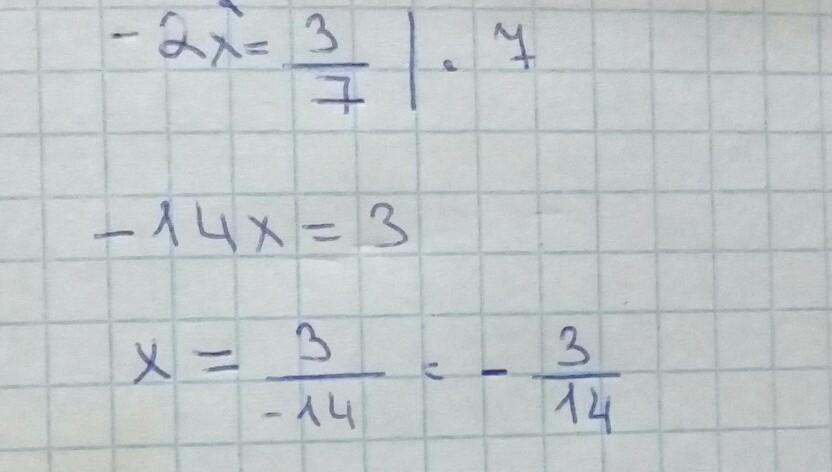 -2x = 3/7 | · 7
-14x = 3
x = 3/-14 = - 3/14